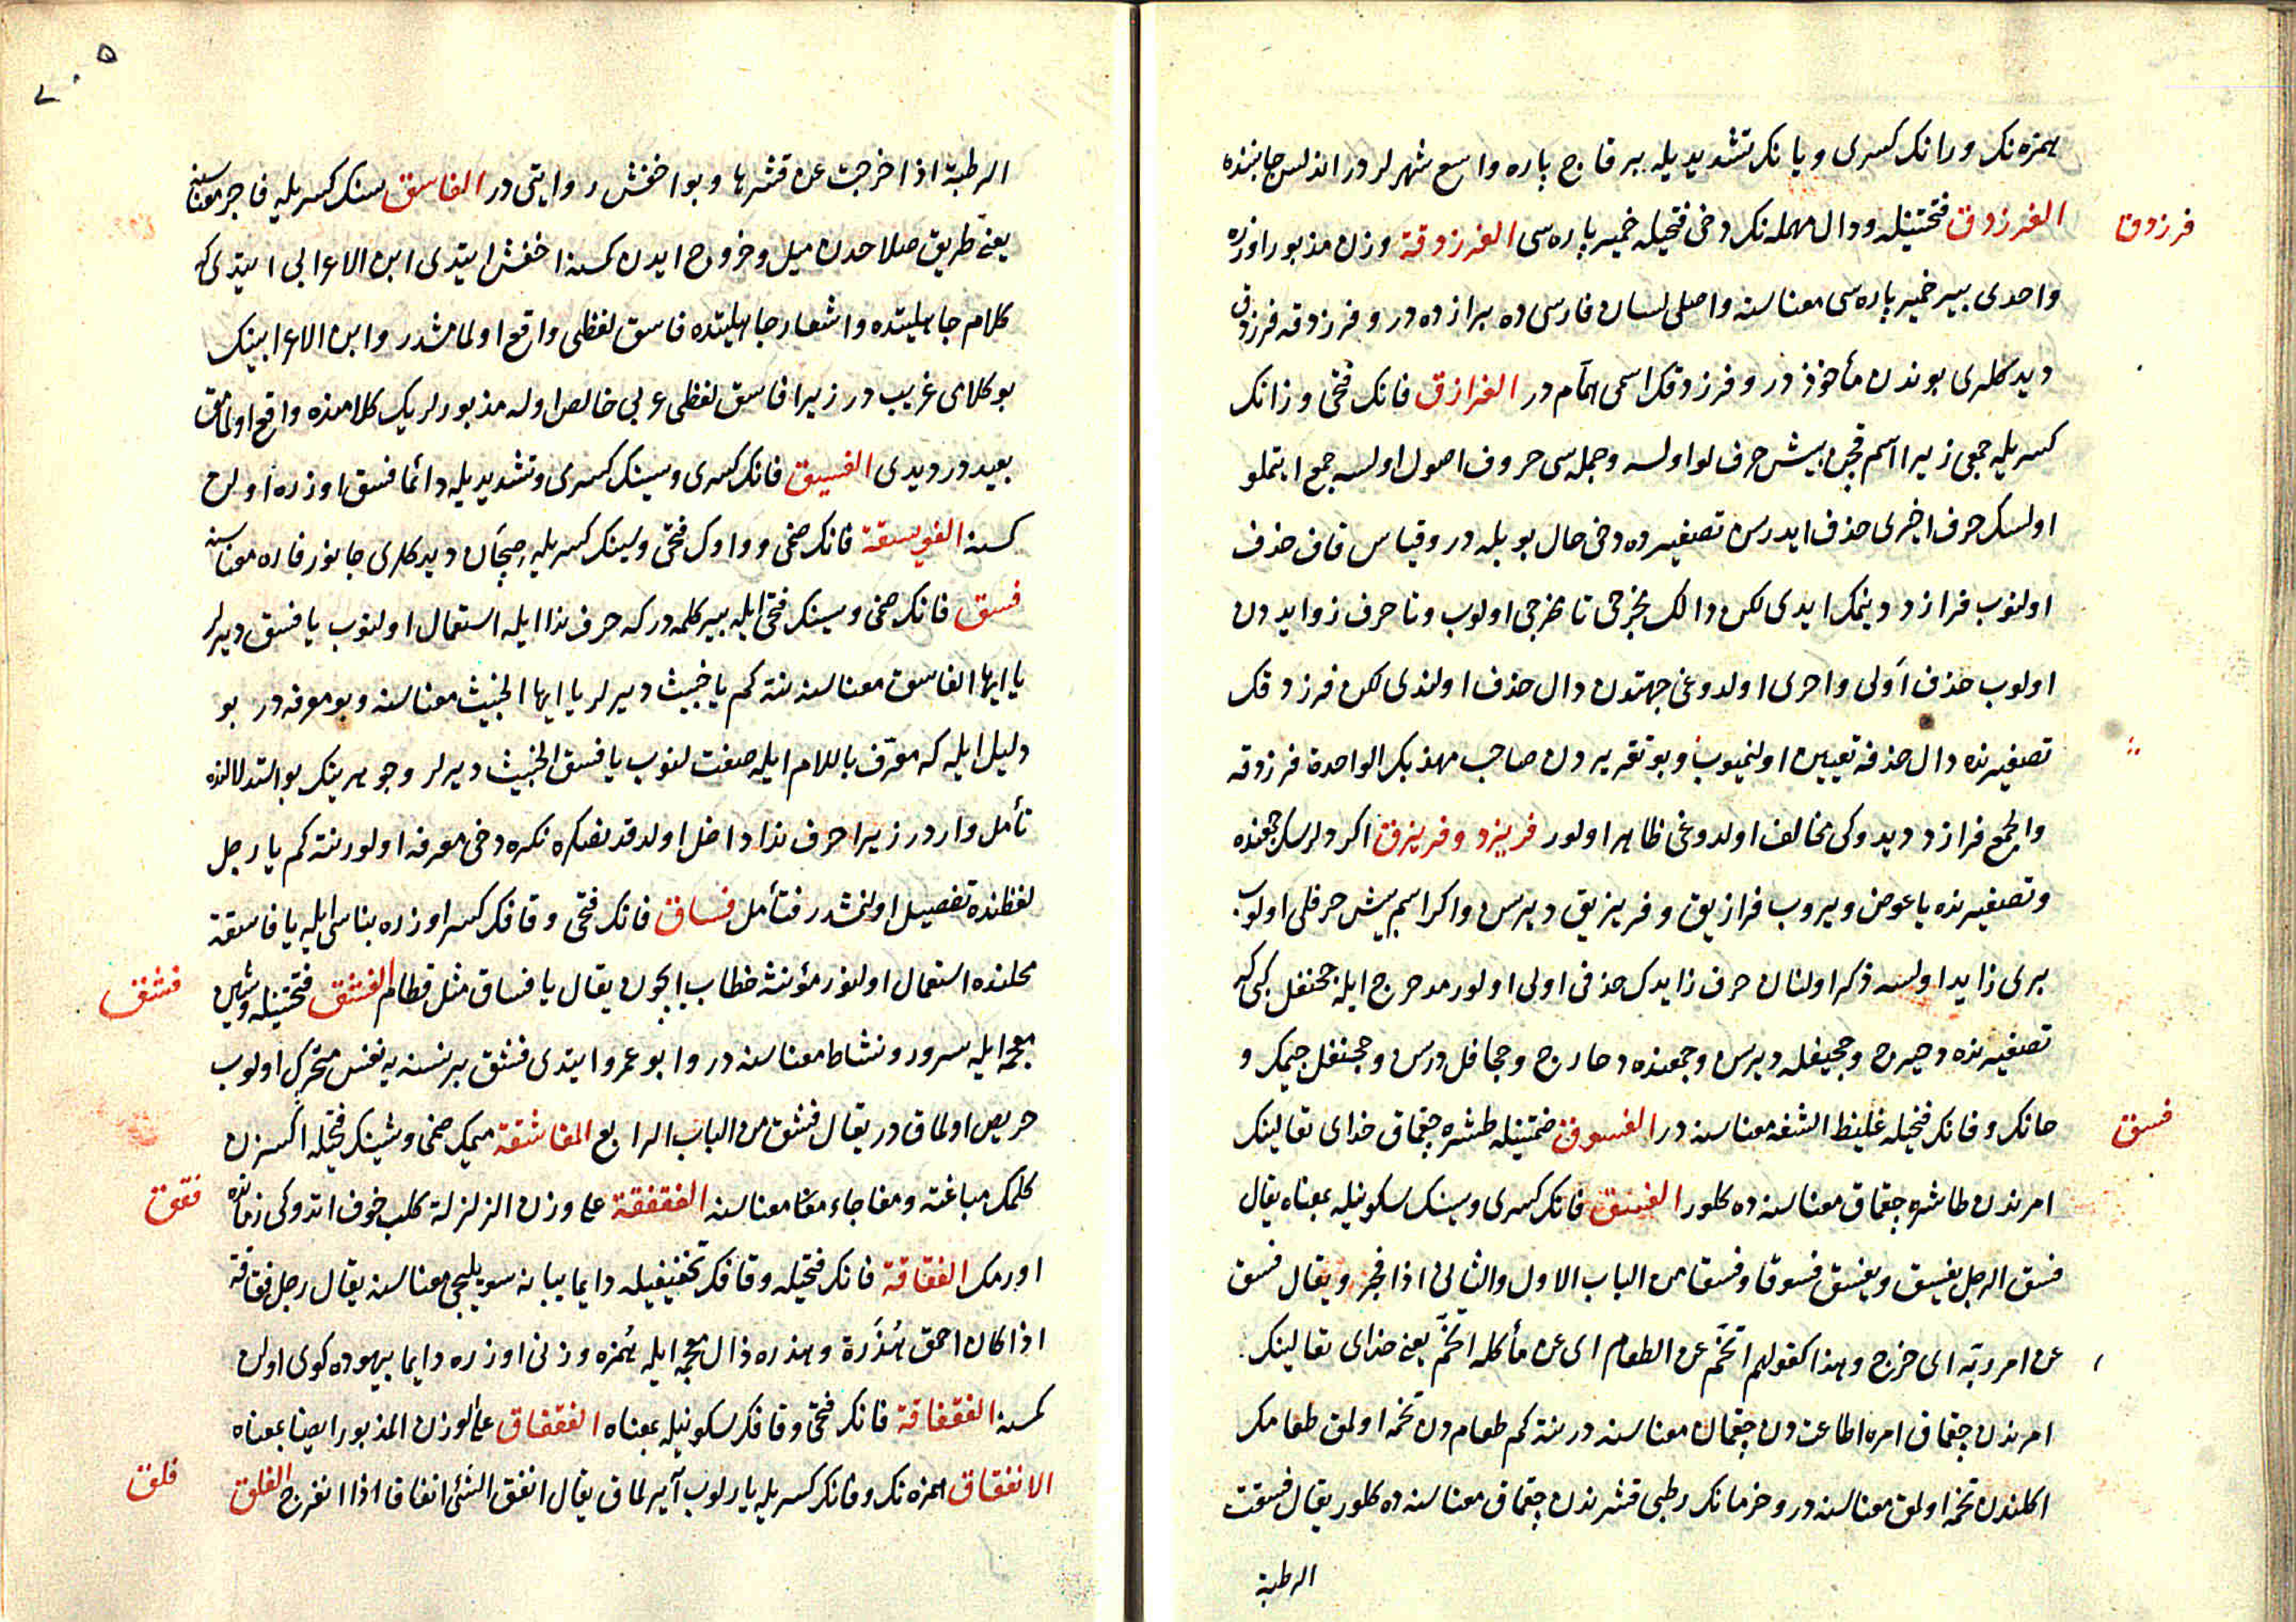 همزه نك و رانك كسری و یانك تشدیدیله بر قاچ پاره واسع شهرلردر اندلس جانبنده
فرزدق
الفرزدق فتحتینله و دال مهمله نك دخی فتحیله خمیر پاره سی الفرزدقة وزن مذبور اوزره
واحدی بیر خمیر پاره سی معناسنه واصلی لسان فارسی ده برازده در و فرزدقه فرزدق
دیدكلری بوندن مأخوذ در و فرزدقك اسمی همّام در الفرازق فانك فتحی و زانك
كسریله جمعی زیرا اسم قچن بیش حرفلو اولسه و جمله سی حروف اصول اولسه جمع ایتملو
اولسك حرف اخیری حذف ایدرسن تصغیرده دخی حال بویله در و قیاس قاف حذف
اولنوب فرازد دینمك ایدی لكن دالك مخرجی تا مخرجی اولوب و تا حرف زوایددن
اولوب حذف اولی واحری اولدوغی جهتدن دال حذف اولندی لكن فرزدقك
تصغیرنده دال حذفه تعیین اولنمیوب و بو تقریردن صاحب مهذبك الواحدة فرزدقه
والجمع فرازد دیدوكی مخالف اولدوغی ظاهر اولور فریزد و فریزق اكر دلرسك جمعنده
و تصغیرنده یا عوض ویروب فرازیق و فریزیق دیرسن واكر اسم بیش حرفلی اولوب
بری زاید اولسه ذكر اولنان حرف زایدك حذفی اولی اولور مدحرج ایله جحنفل كبی كه
تصغیرنده دحیرج و جحیفله دیرسن و جمعنده دحارج و جحافل درسن و جحنفل جیمك و
فسق
حانك و فانك فتحیله غلیظ الشفه معناسنه در الفسوق ضمتینله طشره چقماق خدای تعالینك
امرندن طاشره چقماق معناسنه ده كلور الفسق فانك كسری و سینك سكونیله بمعناه یقال
فسق الرجل یفسق ویفسق فسوقا وفسقا من الباب الاول والثانی اذا فجر ویقال فسق
عن امر ربه ای خرج وهذا كقولهم اتخّم عن الطعام ای عن مأكله اتخّم یعنی خدای تعالینك
امرندن چقماق امره اطاعتدن چقمان معناسنه در نته كم طعام دن تخمه اولمق طعامك
اكلندن تخمه اولمق معناسنه در و خرمانك رطبی قشرندن چقماق معناسنه ده كلور یقال فسقت
الرطبة
الرطبة اذا خرجت عن قشرها و بو اخفش روایتی در الفاسق سینك كسریله فاجر معناسنه
یعنی طریق صلاحدن میل و خروج ایدن كمسنه اخفش ایتدی ابن الاعرابی ایتدی كه
كلام جاهلیتده و اشعار جاهلیتده فاسق لفظی واقع اولمامشدر و ابن الاعرابینك
بو كلامی غریب در زیرا فاسق لفظی عربی خالص اوله مذبورلرك كلامنده واقع اولمامق
بعید در دیدی الفسیق فانك كسری و سینك كسری و تشدیدیله دائما فسق اوزره اولن
كمسنه الفویسقة فانك ضمی و واوك فتحی و سینك كسریله صیچان دیدكلری جانور فاره معناسنه
فسق فانك ضمی و سینك فتحی ایله بیر كلمه در كه حرف ندا ایله استعمال اولنوب یا فسق دیرلر
یا ایها الفاسق معناسنه نته كم یا خبیث دیرلر یا ایها الخبیث معناسنه و بو معرفه در بو
دلیل ایله كه معرّف باللام ایله صفت لنوب یا فسق الخبیث دیرلر و جوهرینك بو استدلالنده
تأمل وار در زیرا حرف ندا داخل اولدقدنصكره نكره دخی معرفه اولور نته كم یا رجل
لفظنده تفصیل اولنمشدر فتأمل فساق فانك فتحی و قافك كسر اوزره بناسی ایله یا فاسقة
فشق
محلنده استعمال اولنور مؤنثه خطاب ایچون یقال یا فساق مثل قطام الفشق فتحتینله و شین
معجمه ایله سرور و نشاط معناسنه در و ابو عمرو ایتدی فشق بر نسنه یه نفس متحرك اولوب
حریص اولماق در یقال فشق من الباب الرابع المفاشقة میمك ضمی و شینك فتحیله اكسزن
فقق
كلمك مباغته و مفاجاء معنا معناسنه الفقفقة علی وزن الزلزلة كلب خوف اتدوكی زمانده
اورمك الفقاقة فانك فتحیله و قافك تخفیفیله دایما یبانه سویلیجی معناسنه یقال رجل فقاقة
اذا كان احمق هُذَرة و هذره ذال معجمه ایله هُمزه وزنی اوزره دایما بیهوده كوی اولن
كمسنه الفقفاقة فانك فتحی و قافك سكونیله بمعناه الفقفاق علی الوزن المذبور ایضا بمعناه
فلق
الانفقاق همزه نك و فانك كسریله یاریلوب آیرلماق یقال انفق الشئ انفقاقا اذا انفرج الفلق